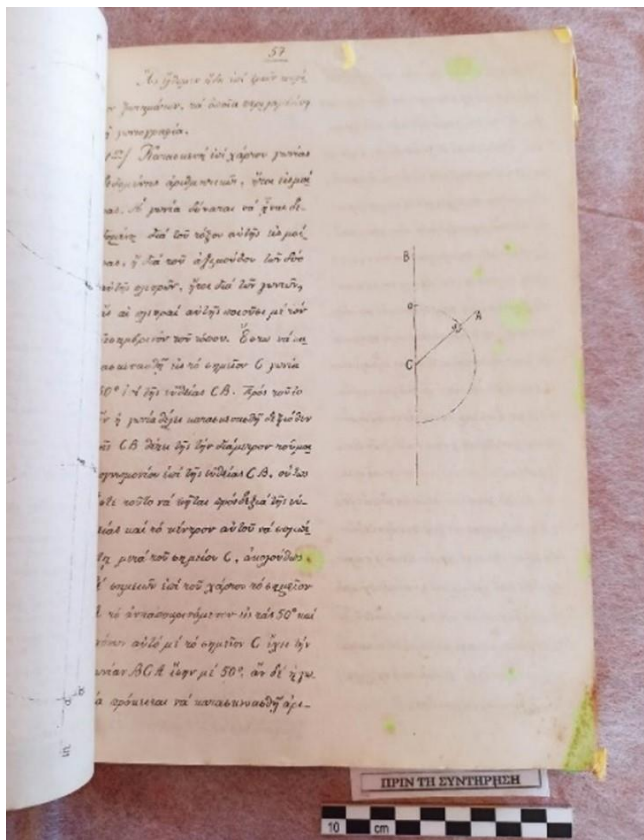 57
Ἂς ἔλθωμεν ἤδη ἐπὶ
ζητημάτων, τὰ ὁποῖα
γωνιογραφία.
Κατασκευὴ ἐπὶ χάρτου γωνίας
δεδομένης ἀριθμητικῶς, ἤτοι εἰς μοί
ρας. Ἡ γωνία δύναται νὰ ἦναι δε
διὰ τοῦ τόξου αὐτῆς εἰς μοί
ρας, ἢ διὰ τοῦ ἀζιμούθου τῶν δύο
αὐτῆς πλευρῶν, ἤτοι διὰ τῶν γωνιῶν,
ἃς αἱ πλευραὶ αὐτῆς ποιοῦσι μὲ τὸν
μεσημβρινὸν τοῦ τόπου. Ἔστω νὰ κα
τασκευασθῇ εἰς τὸ σημεῖον C γωνία
50° τῆς εὐθείας CB. Πρὸς τοῦτο
ἂν ἡ γωνία θέλει κατασκευασθῆ δεξιόθεν
τῆς CB θέτει τις τὴν διάμετρον τοῦ μοι
ρογνωμονίου ἐπὶ τῆς εὐθείας CB, οὕτως
ὥστε τοῦτο νὰ πρὸς δεξιὰ τῆς εὐ-
θείας καὶ τὸ κέντρον αὐτοῦ νὰ
μετὰ τοῦ σημείου C, ἀκολούθως
σημειῶν ἐπὶ τοῦ χάρτου τὸ σημεῖον
τὸ εἰς τὰς 50° καὶ
αὐτὸ μὲ τὸ σημεῖον C ἔχει τὴν
γωνίαν BCA ἴσην μὲ 50°, ἂν δὲ ἡ γω
πρόκειται νὰ κατασκευασθῇ ἀρι-
B
a
a
A
C
ΠΡΙΝ ΤΗ ΣΥΝΤΗΡΗΣΗ
10 cm